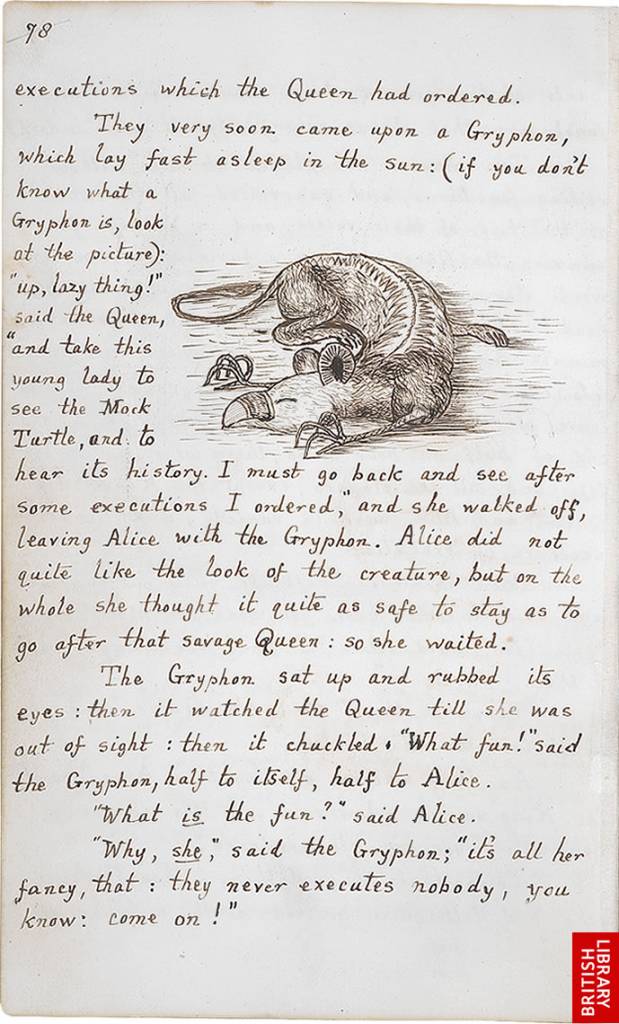 78
executions which the Queen had ordered.
They very soon came upon a Gryphon,
which lay fast asleep in the sun: (if you don't
know what a
Gryphon is, look
at the picture):
"up, lazy thing!"
said the Queen,
"and take this
young lady to
see the Mock
Turtle, and to
hear its history. I must go back and see after
some executions I ordered," and she walked off,
leaving Alice with the Gryphon. Alice did not
quite like the look of the creature, but on the
whole she thought it quite as safe to stay as to
go after that savage Queen: so she waited.
The Gryphon sat up and rubbed its
eyes: then it watched the Queen till she was
out of sight: then it chuckled. "What fun!" said
the Gryphon, half to itself, half to Alice.
"What is the fun?" said Alice.
"Why, she," said the Gryphon; "it's all her
fancy, that: they never executes nobody, you
know: come on!"
BRITISH
LIBRARY